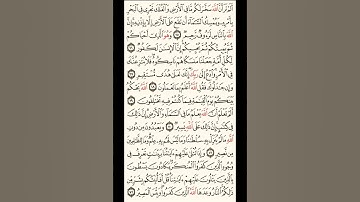 أَلَمْ تَرَ أَنَّ ٱللَّهَ سَخَّرَ لَكُم مَّا فِى ٱلْأَرْضِ وَٱلْفُلْكَ تَجْرِى فِى ٱلْبَحْرِ
بِأَمْرِهِۦ وَيُمْسِكُ ٱلسَّمَآءَ أَن تَقَعَ عَلَى ٱلْأَرْضِ إِلَّا بِإِذْنِهِۦٓ إِنَّ
ٱللَّهَ بِٱلنَّاسِ لَرَءُوفٌ رَّحِيمٌ ٦٥ وَهُوَ ٱلَّذِىٓ أَحْيَاكُمْ
ثُمَّ يُمِيتُكُمْ ثُمَّ يُحْيِيكُمْ إِنَّ ٱلْإِنسَٰنَ لَكَفُورٌ ٦٦
لِّكُلِّ أُمَّةٍ جَعَلْنَا مَنسَكًا هُمْ نَاسِكُوهُ فَلَا يُنَٰزِعُنَّكَ
فِى ٱلْأَمْرِ وَٱدْعُ إِلَىٰ رَبِّكَ إِنَّكَ لَعَلَىٰ هُدًى مُّسْتَقِيمٍ ٦٧
وَإِن جَٰدَلُوكَ فَقُلِ ٱللَّهُ أَعْلَمُ بِمَا تَعْمَلُونَ ٦٨ ٱللَّهُ يَحْكُمُ
بَيْنَكُمْ يَوْمَ ٱلْقِيَٰمَةِ فِيمَا كُنتُمْ فِيهِ تَخْتَلِفُونَ ٦٩
أَلَمْ تَعْلَمْ أَنَّ ٱللَّهَ يَعْلَمُ مَا فِى ٱلسَّمَآءِ وَٱلْأَرْضِ إِنَّ ذَٰلِكَ
فِى كِتَٰبٍ إِنَّ ذَٰلِكَ عَلَى ٱللَّهِ يَسِيرٌ ٧٠ وَيَعْبُدُونَ مِن دُونِ
ٱللَّهِ مَا لَمْ يُنَزِّلْ بِهِۦ سُلْطَٰنًا وَمَا لَيْسَ لَهُم بِهِۦ عِلْمٌ وَمَا لِلظَّٰلِمِينَ
مِن نَّصِيرٍ ٧١ وَإِذَا تُتْلَىٰ عَلَيْهِمْ ءَايَٰتُنَا بَيِّنَٰتٍ تَعْرِفُ فِى
وُجُوهِ ٱلَّذِينَ كَفَرُوا۟ ٱلْمُنكَرَ يَكَادُونَ يَسْطُونَ
بِٱلَّذِينَ يَتْلُونَ عَلَيْهِمْ ءَايَٰتِنَا قُلْ أَفَأُنَبِّئُكُم بِشَرٍّ مِّن
ذَٰلِكُمُ ٱلنَّارُ وَعَدَهَا ٱللَّهُ ٱلَّذِينَ كَفَرُوا۟ وَبِئْسَ ٱلْمَصِيرُ ٧٢